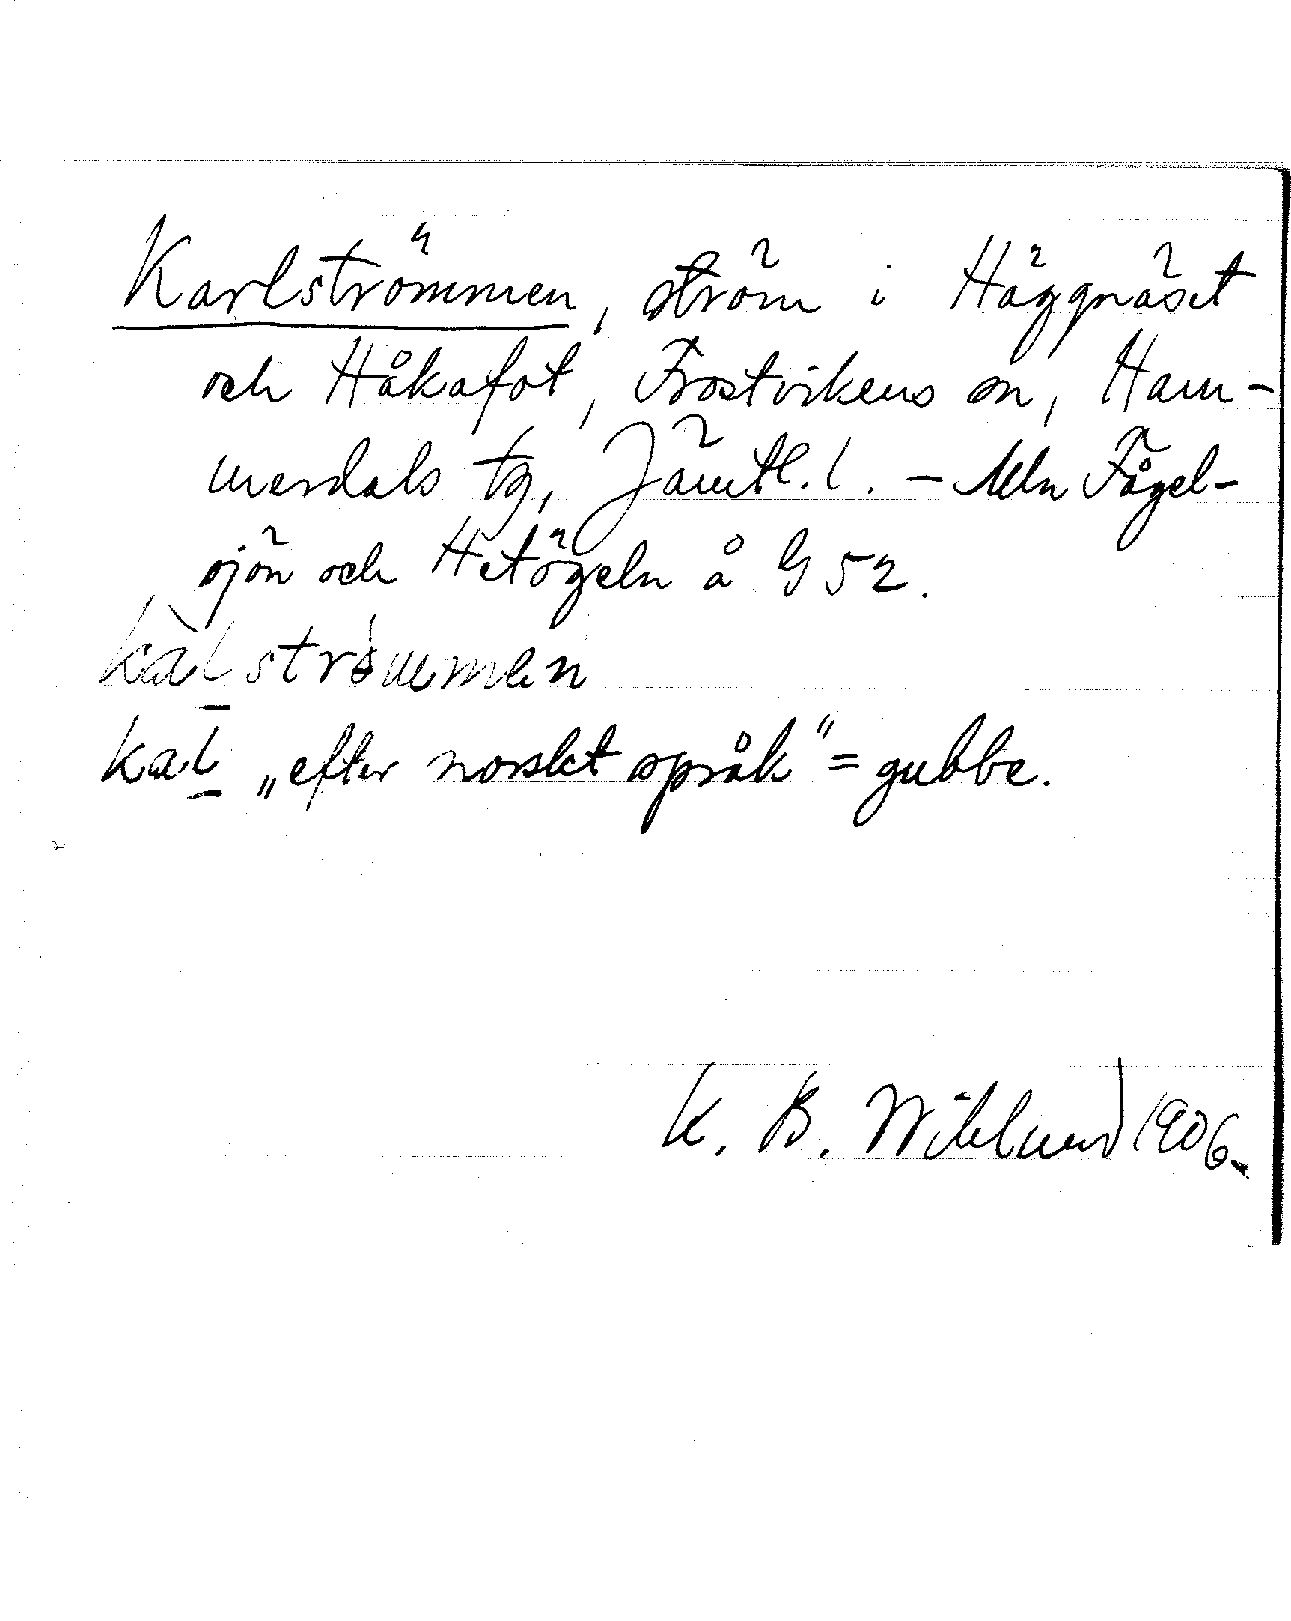 Karlströmmen, ström i Häggnäset
och Håkafot, Frostvikens sn, Ham-
merdals tg, Jämtl. l. – Mln Fågel-
sjön och Hetögeln å G 52.
kàl strömmen
kal „efter norskt språk" = gubbe.
K. B. Wiklund 1906.